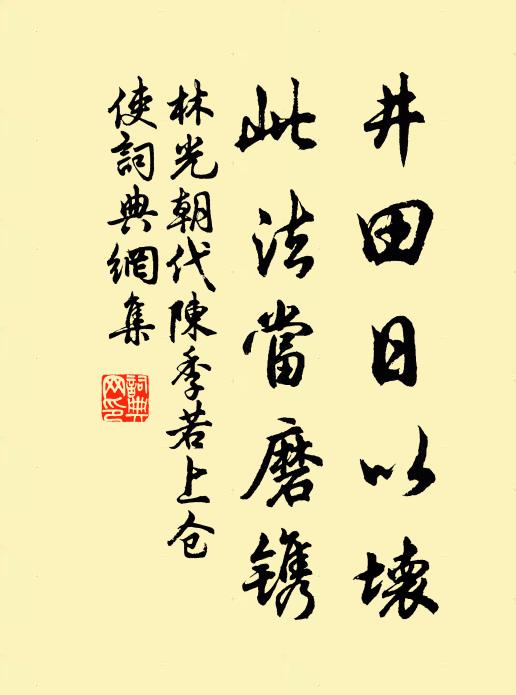 井田日以壞
此法當磨鐫
林光朝代陳季若上仓
使詞典網集
詞典网印